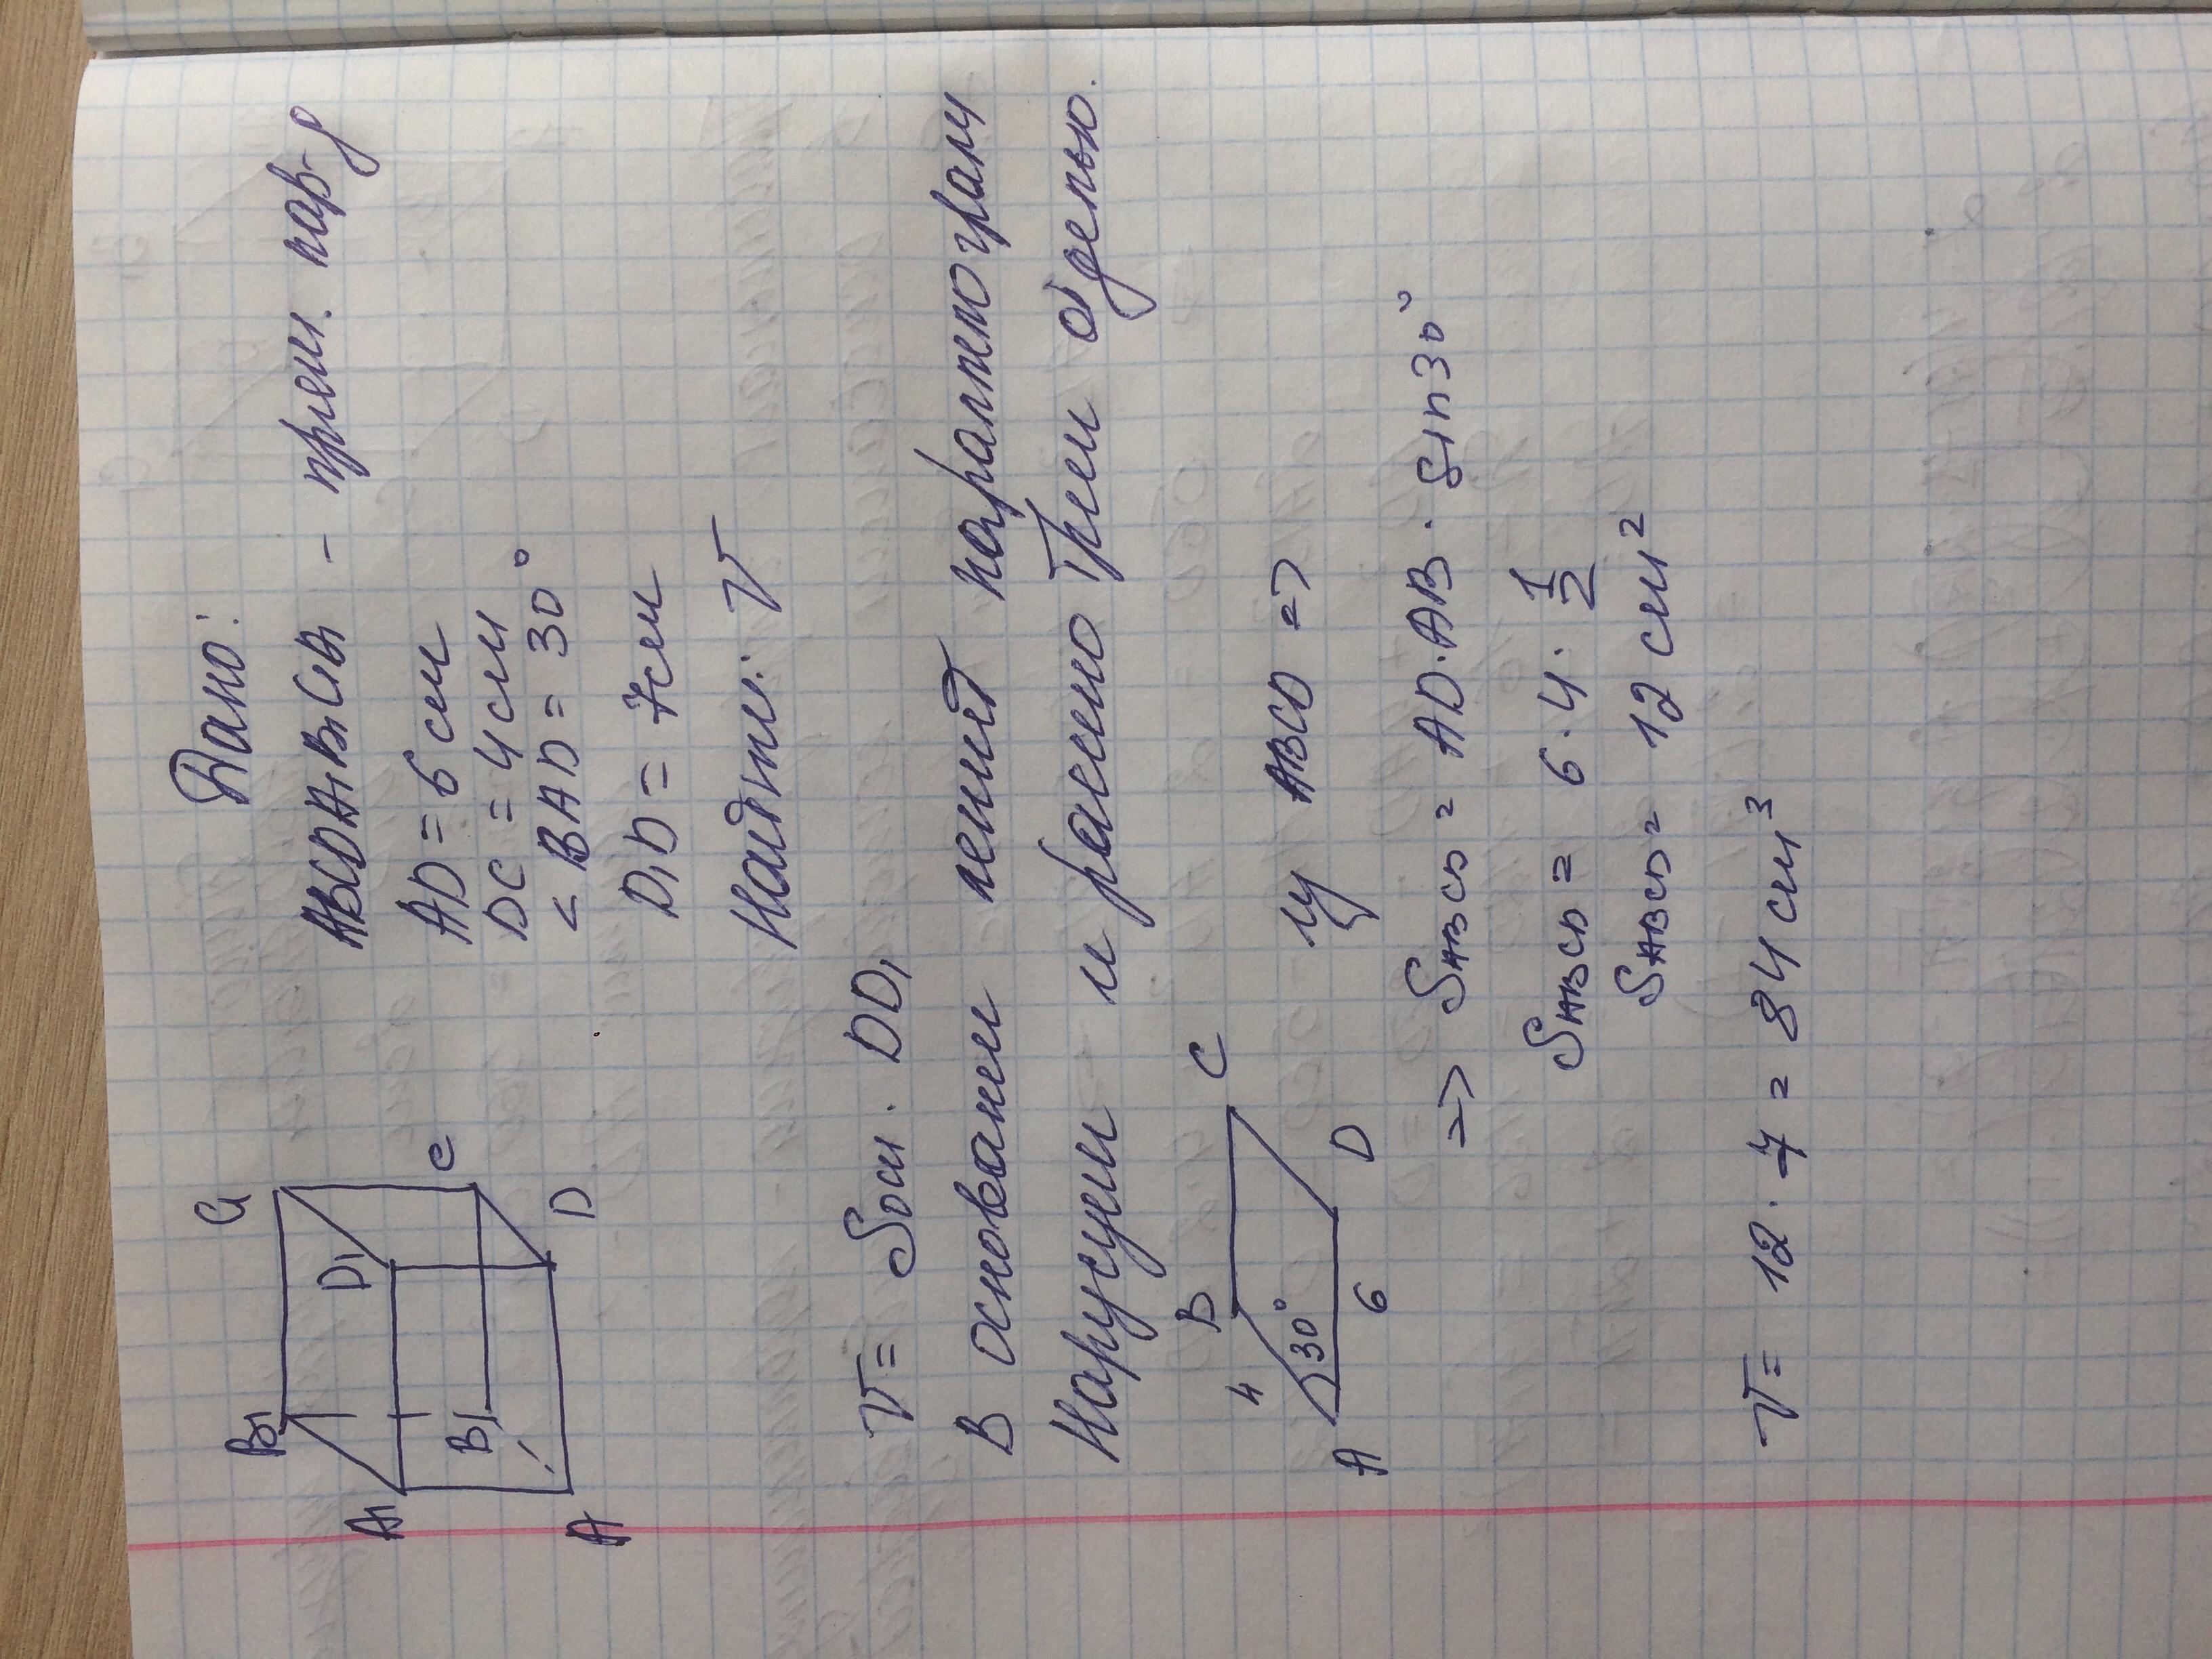 Дано:
ABCDA₁B₁C₁D₁ - прям. пар-р
AD = 6 см
DC = 4 см
< BAD = 30°
D₁D = 7 см
Найти: V
B₁ C₁
A₁ D₁
B₁ C
A D
V = Sосн · DD₁
В основании лежит параллелограм
Нарусуем и расмотрем одельно.
B C
4 30°
A 6 D
из ABCD =>
=> SABCD = AD·AB · sin30°
SABCD = 6·4·1/2
SABCD = 12 см²
V = 12 · 7 = 84 см³